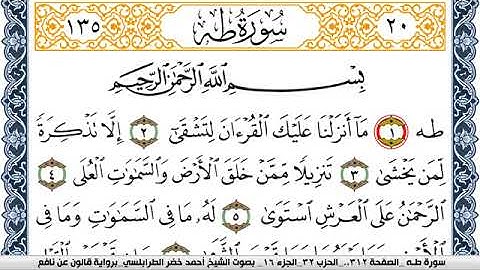 ١٣٥ سُورَةُ طه ٢٠
بِسْمِ اللَّهِ الرَّحْمَٰنِ الرَّحِيمِ
طه ١ مَا أَنزَلْنَا عَلَيْكَ الْقُرْءَانَ لِتَشْقَىٰ ٢ إِلَّا تَذْكِرَةً
لِّمَن يَخْشَىٰ ٣ تَنزِيلًا مِّمَّنْ خَلَقَ الْأَرْضَ وَالسَّمَٰوَٰتِ الْعُلَى ٤
الرَّحْمَٰنُ عَلَى الْعَرْشِ اسْتَوَىٰ ٥ لَهُ مَا فِي السَّمَٰوَٰتِ وَمَا فِي
سورة طـه _الصفحة ٣١٢.._ الحزب ٣٢_ الجزء ١٦_ بصوت الشيخ أحمد خضر الطرابلسي _برواية قالون عن نافع